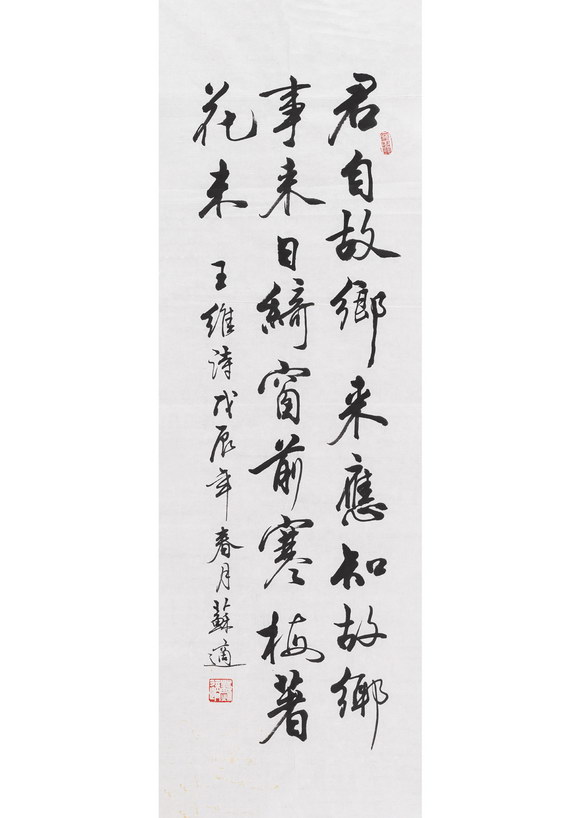 君自故鄉来應知故鄉
事来日綺窗前寒梅著
花未
王維詩戊辰年春月蘇適